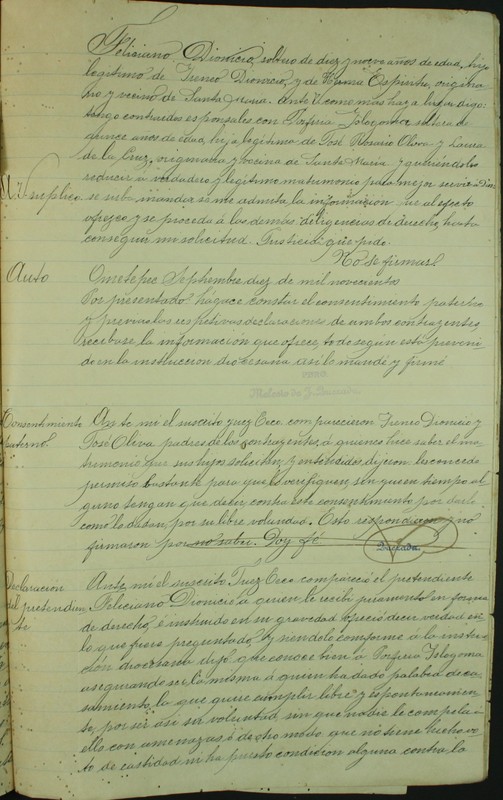 Feliciano Dionicio, soltero de diez y nueve años de edad, hijo
legitimo de Ireneo Dionicio, y de Espiritu, origina
rio y vecino de Santa Maria. Ante U como mas haya lugar digo:
tengo contraidos esponsales con Porfiria soltera de
quince años de edad, hija legitima de José Rosario Oliva y Laura
de la Cruz, originaria y vecina de Santa Maria y queriéndolos
reducir á verdadero y legitimo matrimonio para mejor servir á Dios
A U. suplico se sirva mandar se me admita la informacion que al efecto
ofrezco y se proceda á las demás diligencias de derecho, hasta
conseguir mi solicitud. Justicia que pido.
No sé firmar
Auto Ometepec Septiembre diez de mil novecientos
Por presentado hágace constar el consentimiento paterno
y previas las respetivas declaraciones de ambos contrayentes,
recibase la informacion que ofrece, todo según está preveni
do en la instruccion diocesana así lo mandé y firmé
Consentimiento Ante mi el suscrito Juez Ecco. comparecieron Ireneo Dionicio y
paterno José Oliva padres de los contrayentes, á quienes hice saber el ma
trimonio que sus hijos solicitan, y entendidos dijeron: le concede
permiso bastante para que lo verifiquen, sin que en tiempo al
guno tengan que decir contra este consentimiento por darlo
como lo daban, por su libre voluntad. Esto respondieron y no
firmaron por no saber. Doy fé
Declaración Ante mi el suscrito Juez Ecco compareció el pretendiente
del pretendien Feliciano Dionicio á quien le recibí juramento en forma
te de derecho, é instruido en su gravedad ofreció decir verdad en
lo que fuere preguntado, y siendolo conforme á la instruc
cion diocesana dijo: que conoce bien á Porfiria
asegurando ser la misma á quien ha dado palabra de ca
samiento, la que quiere cumplir libre y espontaneamen
te, por ser así su voluntad, sin que nadie le compela á
ello con amenazas ó de otro modo, que no tiene hecho vo
to de castidad ni ha puesto condicion alguna contra lo